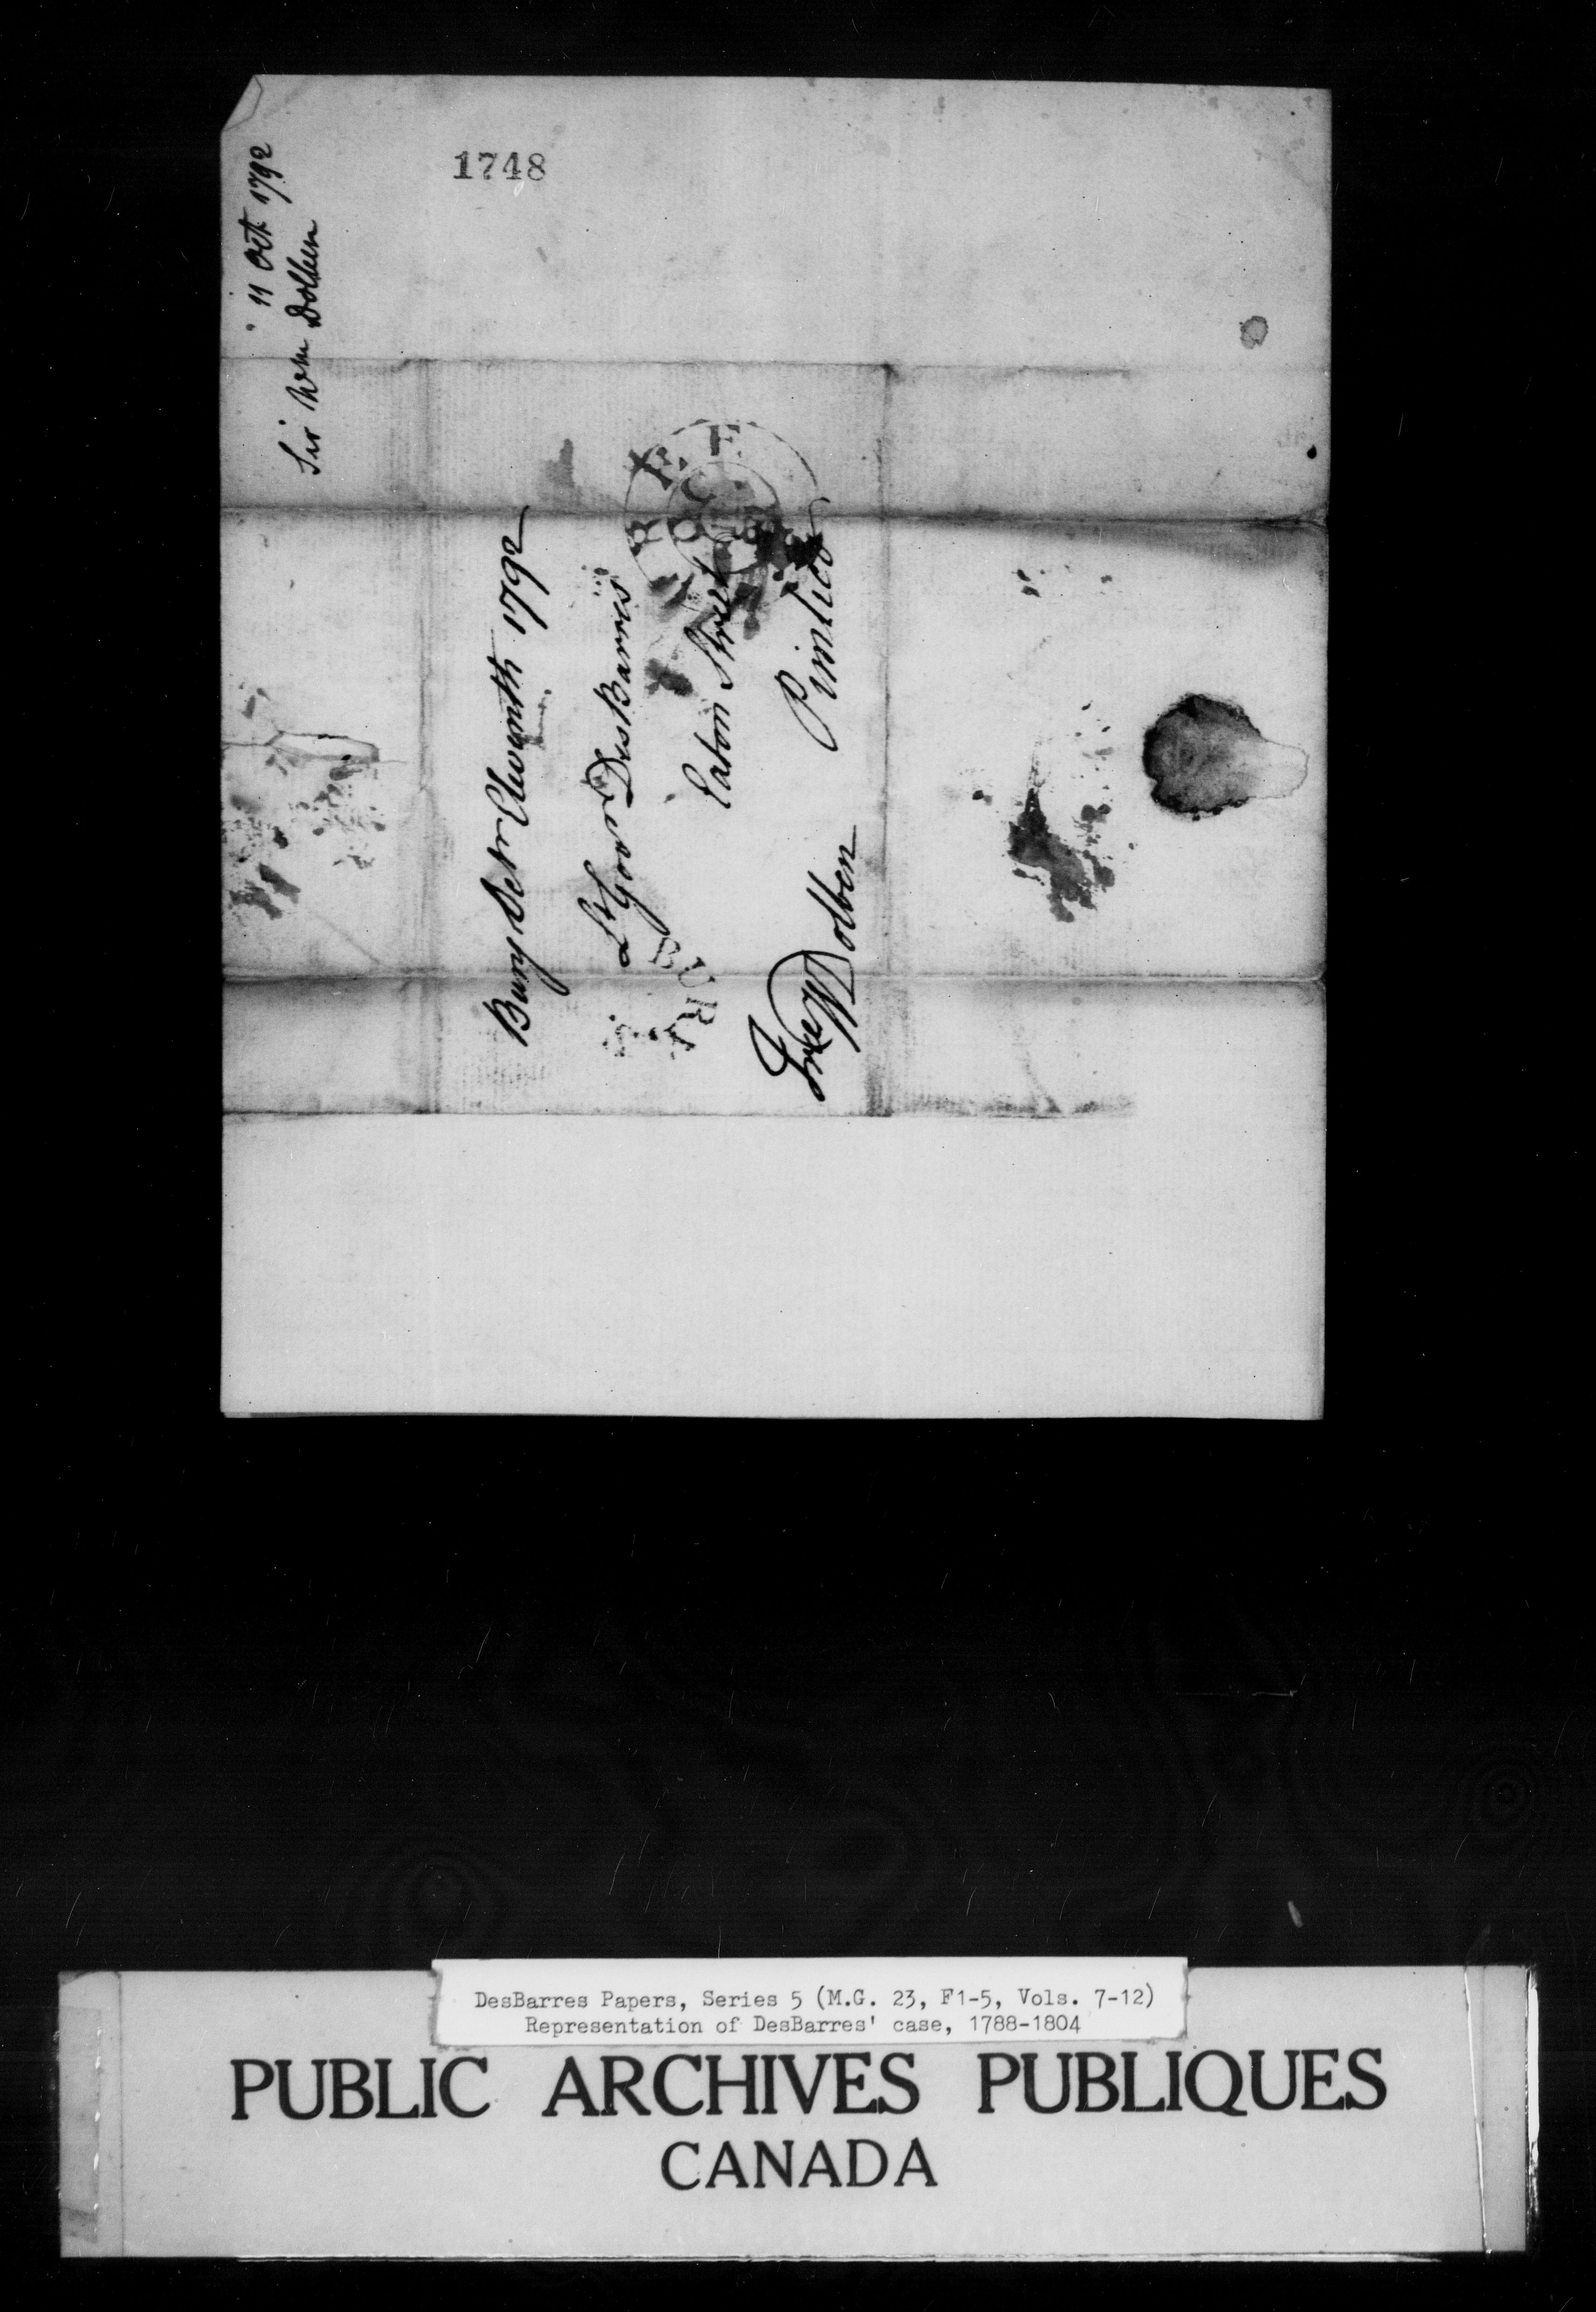 1748
11 Oct 1792
Sir Wm Dolben
Bury Octr Eleventh 1792
Lt Govr DesBarres
Eaton Street
Pimlico
Free W Dolben
DesBarres Papers, Series 5 (M.G. 23, F1-5, Vols. 7-12)
Representation of DesBarres' case, 1788-1804
PUBLIC ARCHIVES PUBLIQUES
CANADA